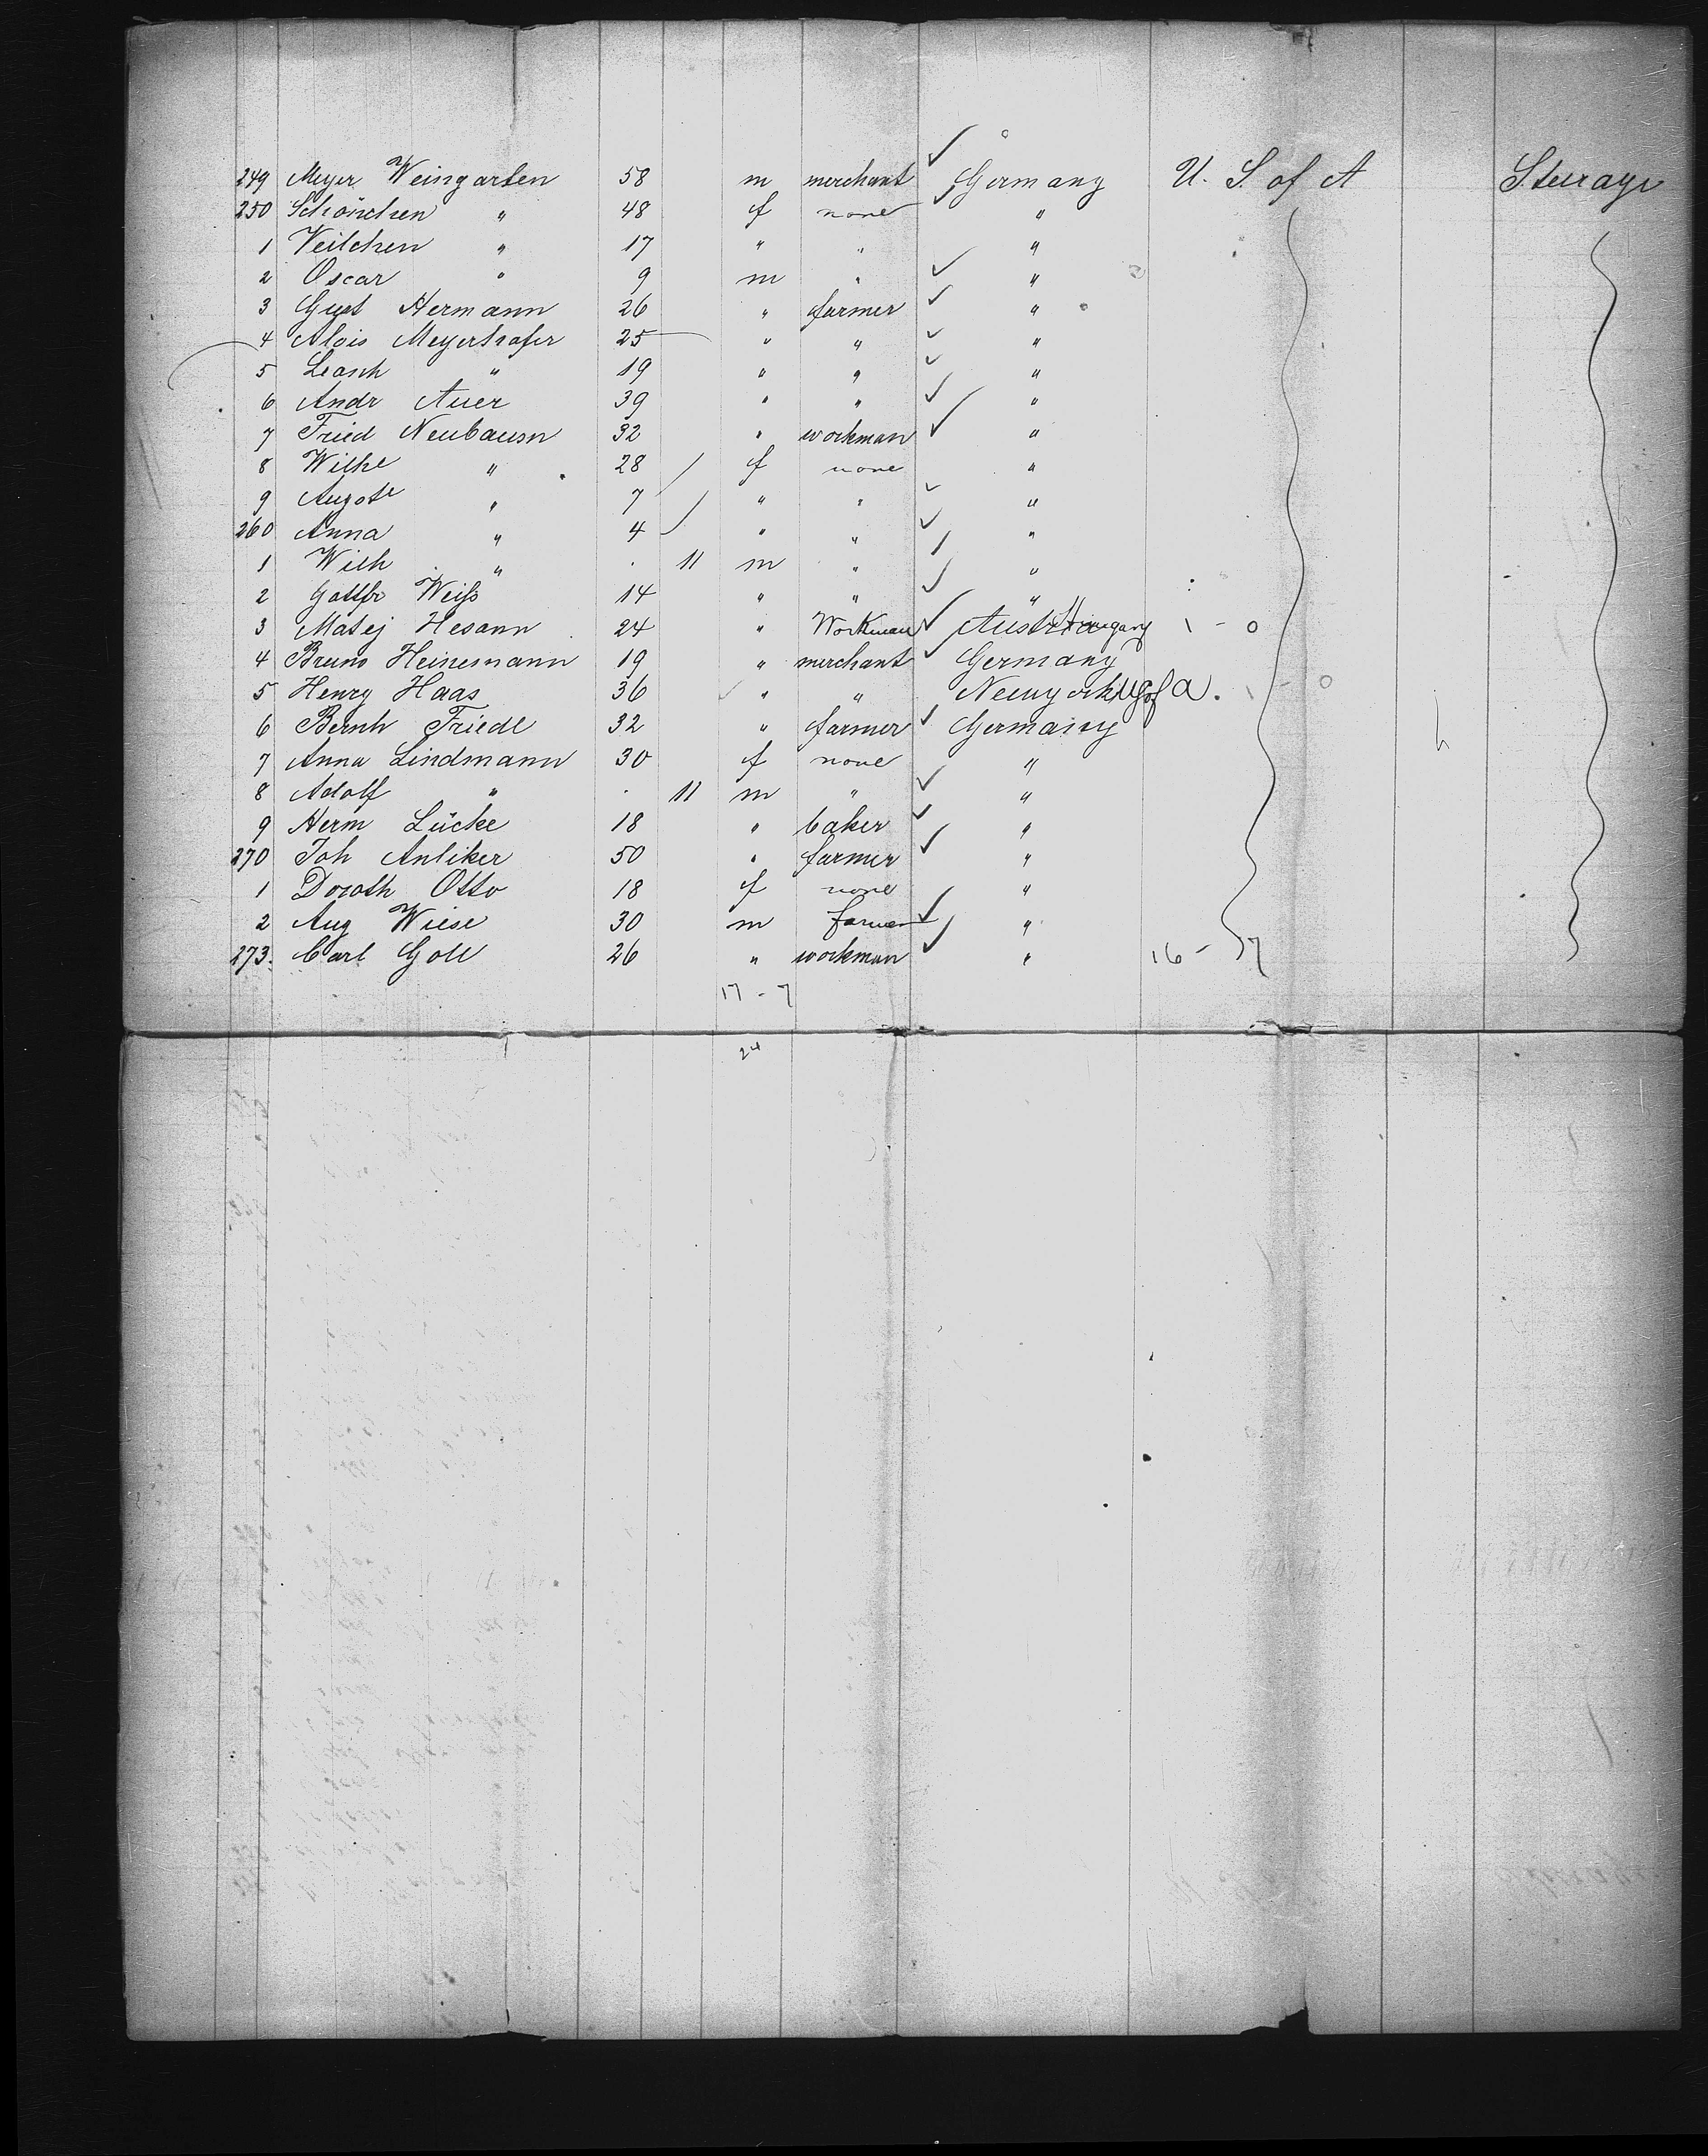 249 Meyer Weingarten 58 m merchant Germany U. S. of A Steerage
250 Schönchen " 48 f none "
1 Veilchen " 17 " " "
2 Oscar " 9 m " "
3 Gust Hermann 26 " farmer "
4 Alois Meyerhofer 25 " " "
5 " 19 " " "
6 Andr Auer 39 " " "
7 Fried Neubaum 32 " workman "
8 Wilhe " 28 f none "
9 Augste " 7 " " "
260 Anna " 4 " " "
1 Wilh " 11 m " "
2 Gottfr Weiß 14 " " "
3 Matej Hesann 24 " Workman Austr Hungary 1 - 0
4 Bruno Heinemann 19 " merchant Germany
5 Henry Haas 36 " " Newyork US of A. 1 - 0
6 Bernh Friedl 32 " farmer Germany
7 Anna Lindmann 30 f none "
8 Adolf " 11 m " "
9 Herm Lücke 18 " baker "
270 Joh Anliker 50 " farmer "
1 Doroth Otto 18 f none "
2 Aug Wiese 30 m farmer "
273. Carl Goll 26 " workman " 16 - 7
17 - 7
24